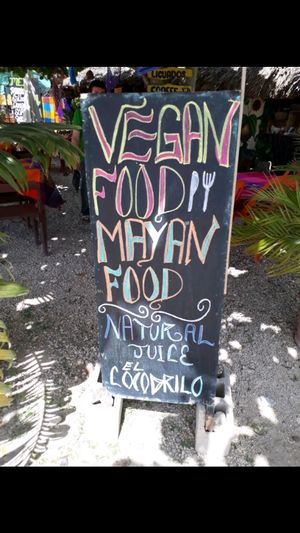 LICUADOS
VEGAN
FOOD
MAYAN
FOOD
NATURAL
JUICE
EL
COCODRILO